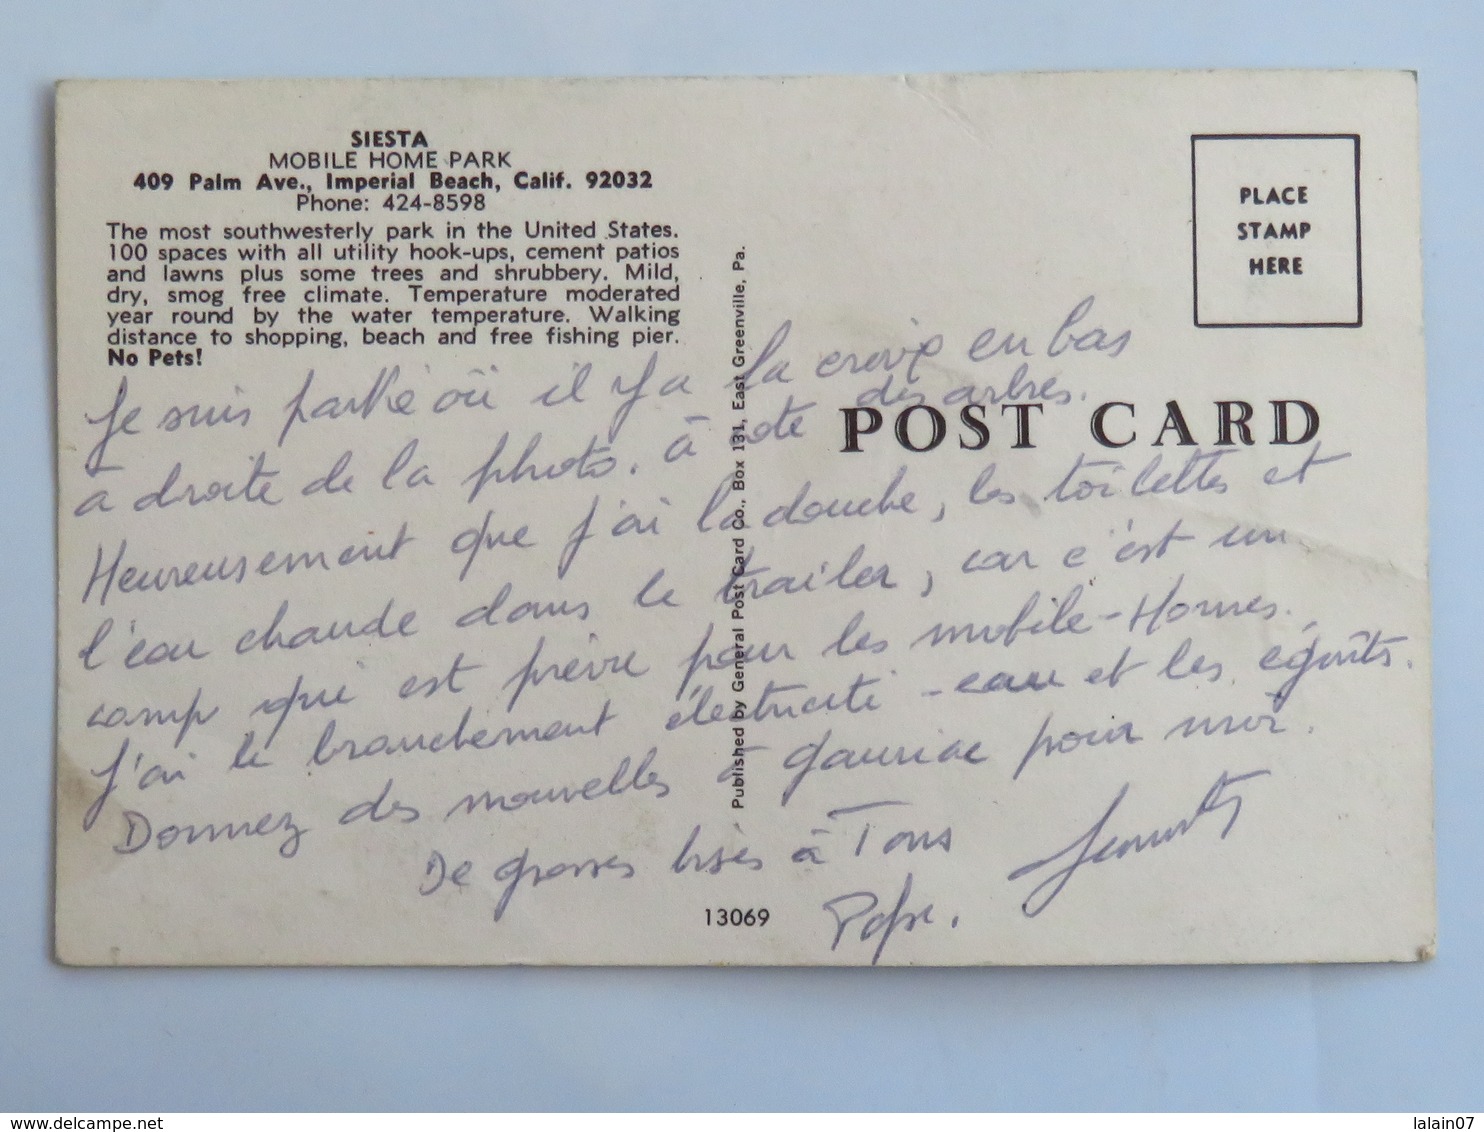 SIESTA
MOBILE HOME PARK
409 Palm Ave., Imperial Beach, Calif. 92032
Phone: 424-8598
The most southwesterly park in the United States.
100 spaces with all utility hook-ups, cement patios
and lawns plus some trees and shrubbery. Mild,
dry, smog free climate. Temperature moderated
year round by the water temperature. Walking
distance to shopping, beach and free fishing pier.
No Pets!
PLACE
STAMP
HERE
POST CARD
Published by General Post Card Co., Box 131, East Greenville, Pa.
Je suis parké où il y a la croix en bas
à droite de la photo. à côte des arbres.
Heureusement que j'ai la douche, les toilettes et
l'eau chaude dans le trailer, car c'est un
camp qui est prévu pour les mobile-Homes.
J'ai le branchement électricité - eau et les égoûts.
Donnez des nouvelles à Gauriac pour moi.
De grosses bises à Tous
13069
delcampe.net
lalain07